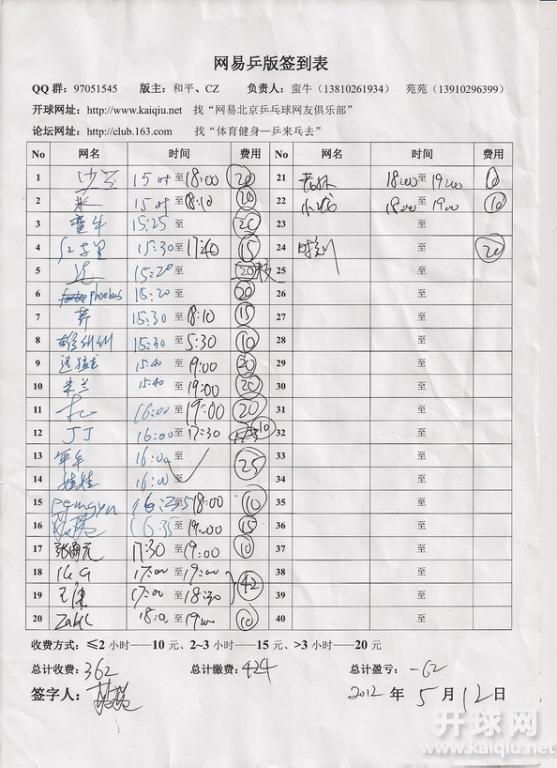 网易乒版签到表
QQ 群：97051545 版主：和平、CZ 负责人：蛮牛（13810261934） 苑苑（13910296399）
开球网址：http://www.kaiqiu.net 找“网易北京乒乓球网友俱乐部”
论坛网址：http://club.163.com 找“体育健身—乒来乓去”
No 网名 时间 费用 No 网名 时间 费用
1 15时 至 18:00 20 21 18:00 至 19:00 10
2 15时 至 18:10 10 22 18:00 至 19:00 10
3 蛮牛 15:25 至 20 23 至
4 15:30 至 17:40 15 24 至 20
5 15:20 至 20 25 至
6 phoebus 15:20 至 20 26 至
7 15:30 至 18:10 15 27 至
8 15:30 至 5:30 10 28 至
9 15:40 至 19:00 20 29 至
10 米兰 15:40 至 19:00 20 30 至
11 16:00 至 19:00 20 31 至
12 丁丁 16:00 至 17:30 10 32 至
13 军军 16:00 至 25 33 至
14 娃娃 16:00 至 34 至
15 至 18:00 10 35 至
16 16:35 至 19:00 15 36 至
17 17:30 至 19:00 10 37 至
18 17:00 至 19:00 42 38 至
19 17:00 至 18:30 39 至
20 18:0 至 19:00 10 40 至
收费方式：≤2 小时——10 元、2~3 小时——15 元、>3 小时——20 元
总计收费：362 总计缴费：424 总计盈亏：-62
签字人： 2012 年 5 月 12 日
开球网
www.kaiqiu.net